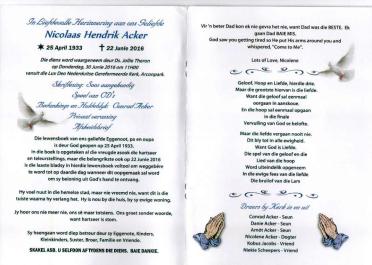 In Liefdevolle Herinnering aan ons Geliefde
Nicolaas Hendrik Acker
25 April 1933 22 Junie 2016
Die diens word waargeneem deur Ds. Jollie Theron
op Donderdag, 30 Junie 2016 om 11H00
vanuit die Lux Deo Nederduitse Gereformeerde Kerk, Arconpark.
Skriflesing: Soos aangekondig
Speel van CD's
Bedankings en Huldeblyk: Conrad Acker
Privaat verassing
Afskeidsbrief
Die lewensboek van ons geliefde Eggenoot, pa en oupa
is deur God geopen op 25 April 1933.
In die boek is opgeteken al die vreugde asook die hartseer
en teleurstellings, maar die belangrikste ook op 22 Junie 2016
is die laaste bladsy in hierdie lewensboek voltooi om weggebêre
te word tot op daardie dag wanneer dit oopgemaak sal word
om sy beloning uit God's hand te ontvang.
Hy veul nout in die hemelse stad, maar nie vreemd nie, want dit is die
tuiste waarna hy verlang het. Hy is nou by die huis, by sy ewige woning.
Jy hoor ons nie meer nie, ons sê maar totsiens. Ons groet sonder woorde,
want hartseer is stom.
Sy heengaan word diep betreur deur sy Eggenote, Kinders,
Kleinkinders, Suster, Broer, Familie en Vriende.
SKAKEL ASB. U SELFOON AF TYDENS DIE DIENS. BAIE DANKIE.
Vir 'n beter Dad kon ek nie gevra het nie, want Dad was die BESTE. Ek
gaan Dad BAIE MIS.
God saw you getting tired so He put His arms around you and
whispered, "Come to Me".
Lots of Love, Nicolene
Geloof, Hoop en Liefde, Word nadie
Maar die grootste hiervan is die liefde.
Want die geloof sal eenmaal
oorgaan in aanskoue.
En die hoop sal eenmaal opgaan
in die finale
Vervulling van God se belofte.
Maar die liefde vergaan nooit nie.
Dit bly tot in alle ewigheid.
Want God is Liefde.
Die spel van die geloof en die
Lied van die hoop
Word uiteindelik opgeneem
In die ewige fees van die liefde
Die bruilof van die Lam
Draers by Kerk in en uit
Conrad Acker - Seun
Danie Acker - Seun
Arnòt Acker - Seun
Nicolene Acker - Dogter
Kobus Jacobs - Vriend
Niekie Scheepers - Vriend